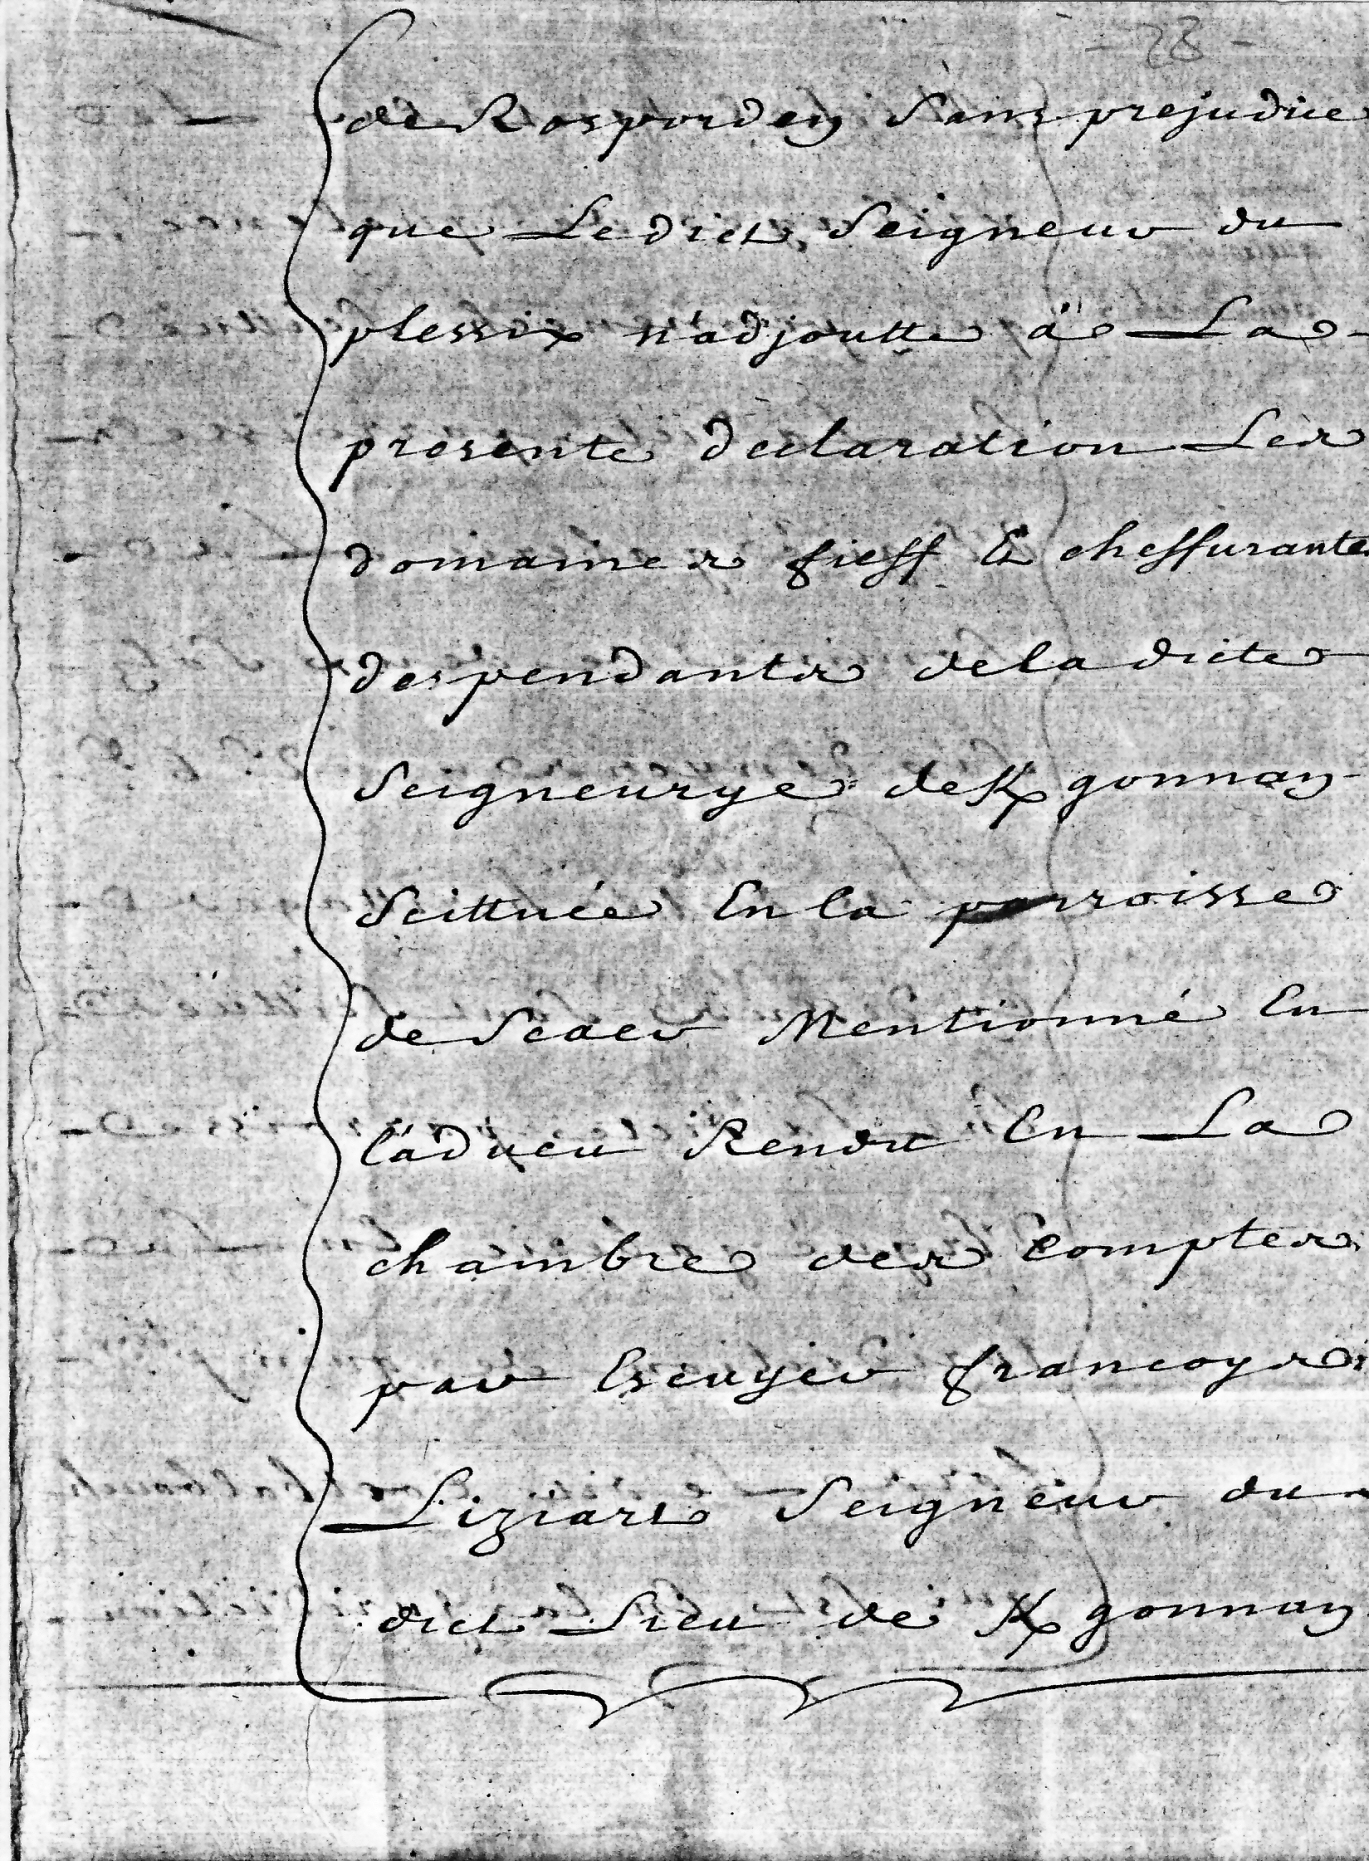 - 28 -
de Rosporden sans prejudice
que Le dict Seigneur du
plessix n'adjoutte a La
presente declaration Les
domaines fieff Et cheffurantes
despendants de la dicte
Seigneurye de K gonnan
Scittuée En la parroisse
de Scaer Mentionné En
l'adveu Rendu En La
chambre des Comptes
par Escuyer francoys
Liziart Seigneur du
dict Lieu de K gonnan